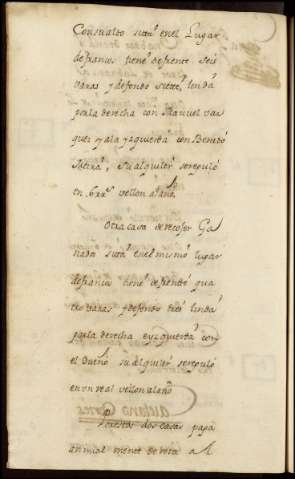 Con sualto sita en el Lugar
de franios tiene de frente seis
varas y de fondo siette, linda
por la derecha con Manuel Vaz
quez y a la yzquierda con Benito
su alquiler se reguló
en 6 rrs vellon al año
Otra casa de recoxer Ga
nado sita en el mismo lugar
de franios tiene de frente qua
tro varas y de fondo tres linda
por la derecha e yzquierda con
el Dueño su alquiler se reguló
en un real vellon al año
Por estas dos casas paga
anualmente de renta al